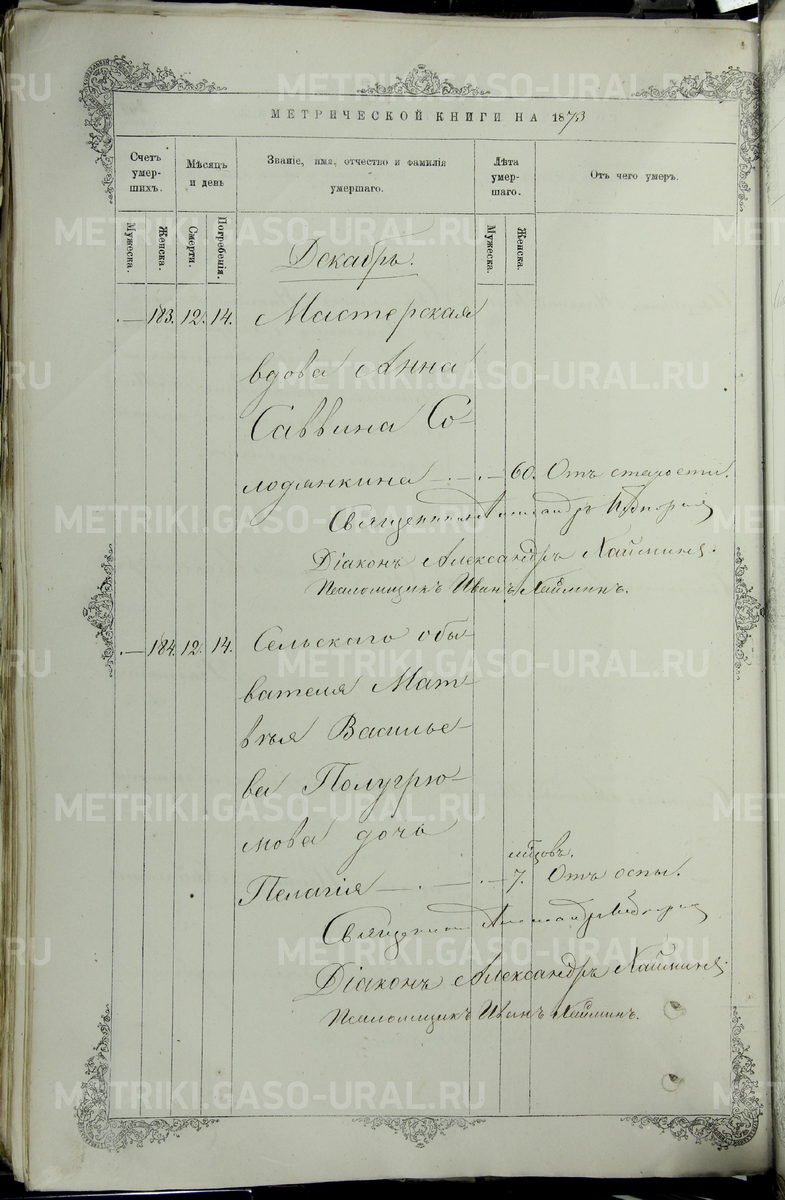 МЕТРИЧЕСКОЙ КНИГИ НА 1873
Счетъ умершихъ.
Мѣсяцъ и день
Званіе, имя, отчество и фамилія умершаго.
Лѣта умершаго.
Отъ чего умеръ.
Мужеска.
Женска.
Смерти.
Погребенія.
Мужеска.
Женска.
Декабрь.
— 183. 12. 14. Мастерская
вдова Анна
Саввина Со-
лодянкина — . — . — 60. Отъ старости.
Священникъ Александръ
Діаконъ Александръ Хайминъ.
Псаломщикъ Иванъ Хайминъ.
— 184. 12. 14. Сельскаго обы-
вателя Мат-
вѣя Василье-
ва Полугрю-
мова дочь
мѣсяцовъ.
Пелагія — . — . — 7. Отъ оспы.
Священникъ Александръ
Діаконъ Александръ Хайминъ.
Псаломщикъ Иванъ Хайминъ.
METRIKI.GASO-URAL.RU